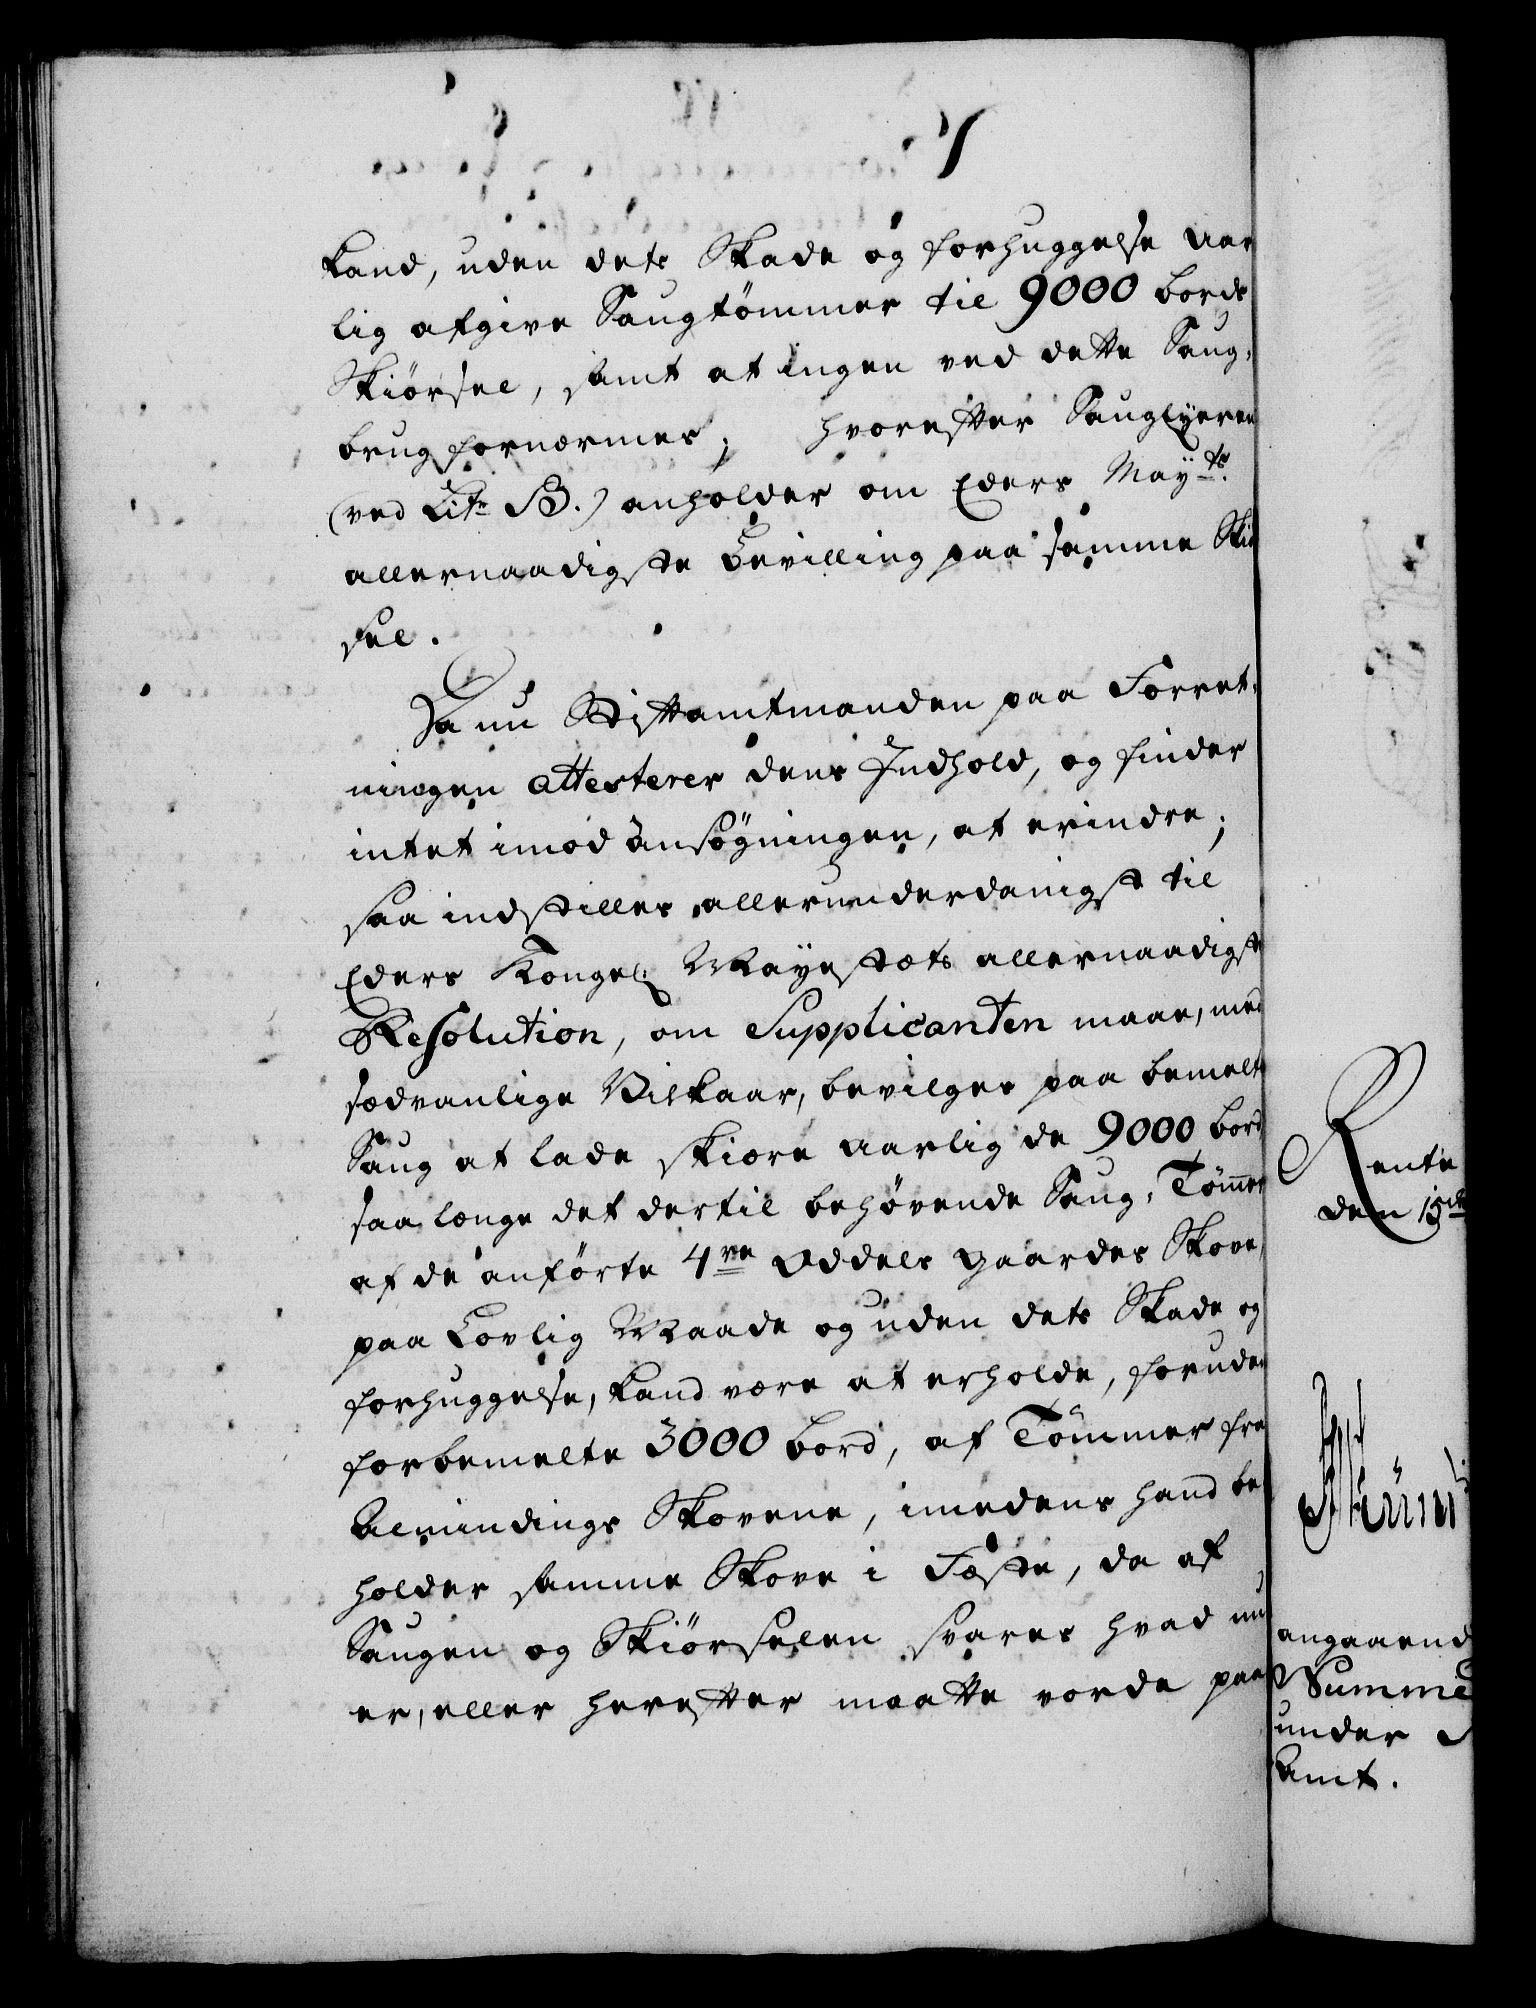 kand, uden dets Skade og forhuggelse aar
lig afgive Saugtömmer til 9000 bords
Skiörsel, samt at ingen ved dette Saug-
brug fornærmes; hvorefter Saugeyeren
(ved Litr B.) anholder om Eders Mayts.
allernaadigste Bevilling paa samme Skiö
sel.
Da nu Stiftamtmanden paa Forret-
ningen attesterer dens Indhold, og finder
intet imod Ansøgningen, at erindre;
saa indstilles allerunderdanigst til
Eders Kongel. Mayestæts allernaadigste
Resolution, om Supplicanten maae, med
sædvanlige Vilkaar, bevilges paa bemelte
Saug at lade skiære aarlig de 9000 bord
saa længe det dertil behøvende Saug-Tømer
af de anførte 4re Oddels Gaardes Skove,
paa Lovlig Maade og uden dets Skade og
forhuggelse, kand være at erholde, foruden
forbemelte 3000 bord, af Tömmer fra
Almindings Skovene, imedens hand be
holder samme Skove i Fæste, da af
Saugen og Skiörselen svares hvad nu
er, eller herefter maatte vorde paa
Rente
den 15de
angaaend
Summe
under
Amt.